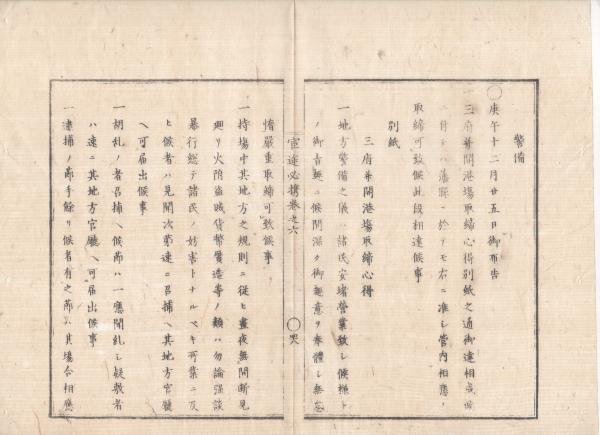 警備
◯庚午十二月廿五日御布告
三府并開港場取締心得別紙之通御達相成候
ニ付テハ藩縣ニ於テモ右ニ准シ管内相應ノ
取締可致候此段相達候事
別紙
三府并開港場取締心得
一地方警備之儀ハ諸民安堵營業致シ候様ト
ノ御吉趣ニ候間深ク御趣意ヲ奉體シ無怠
官途必携巻之六
◯
惰嚴重取締可致候事
一持場中其地方之規則ニ従ヒ晝夜無間断見
廻リ火防盗賊貨幣贋造等ノ類ハ勿論强談
暴行総テ諸民ノ妨害トナルベキ所業ニ及
ヒ候者ハ見聞次第速ニ召捕ヘ其地方官廳
ヘ可届出候事
一胡乱ノ者召捕ヘ候節ハ一應聞糺シ疑敷者
ハ速ニ其地方官廳ヘ可届出候事
一逮捕ノ節手餘リ候者有之節ハ其場合相應